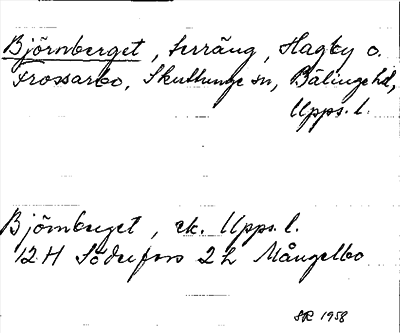 Björnberget, terräng, Hagby o.
Frossarbo, Skuttunge sn, Bälinge hd,
Upps. l.
Björnberget, ek. Upps. l.
12 H Söderfors 2 h Mångelbo
SR 1958